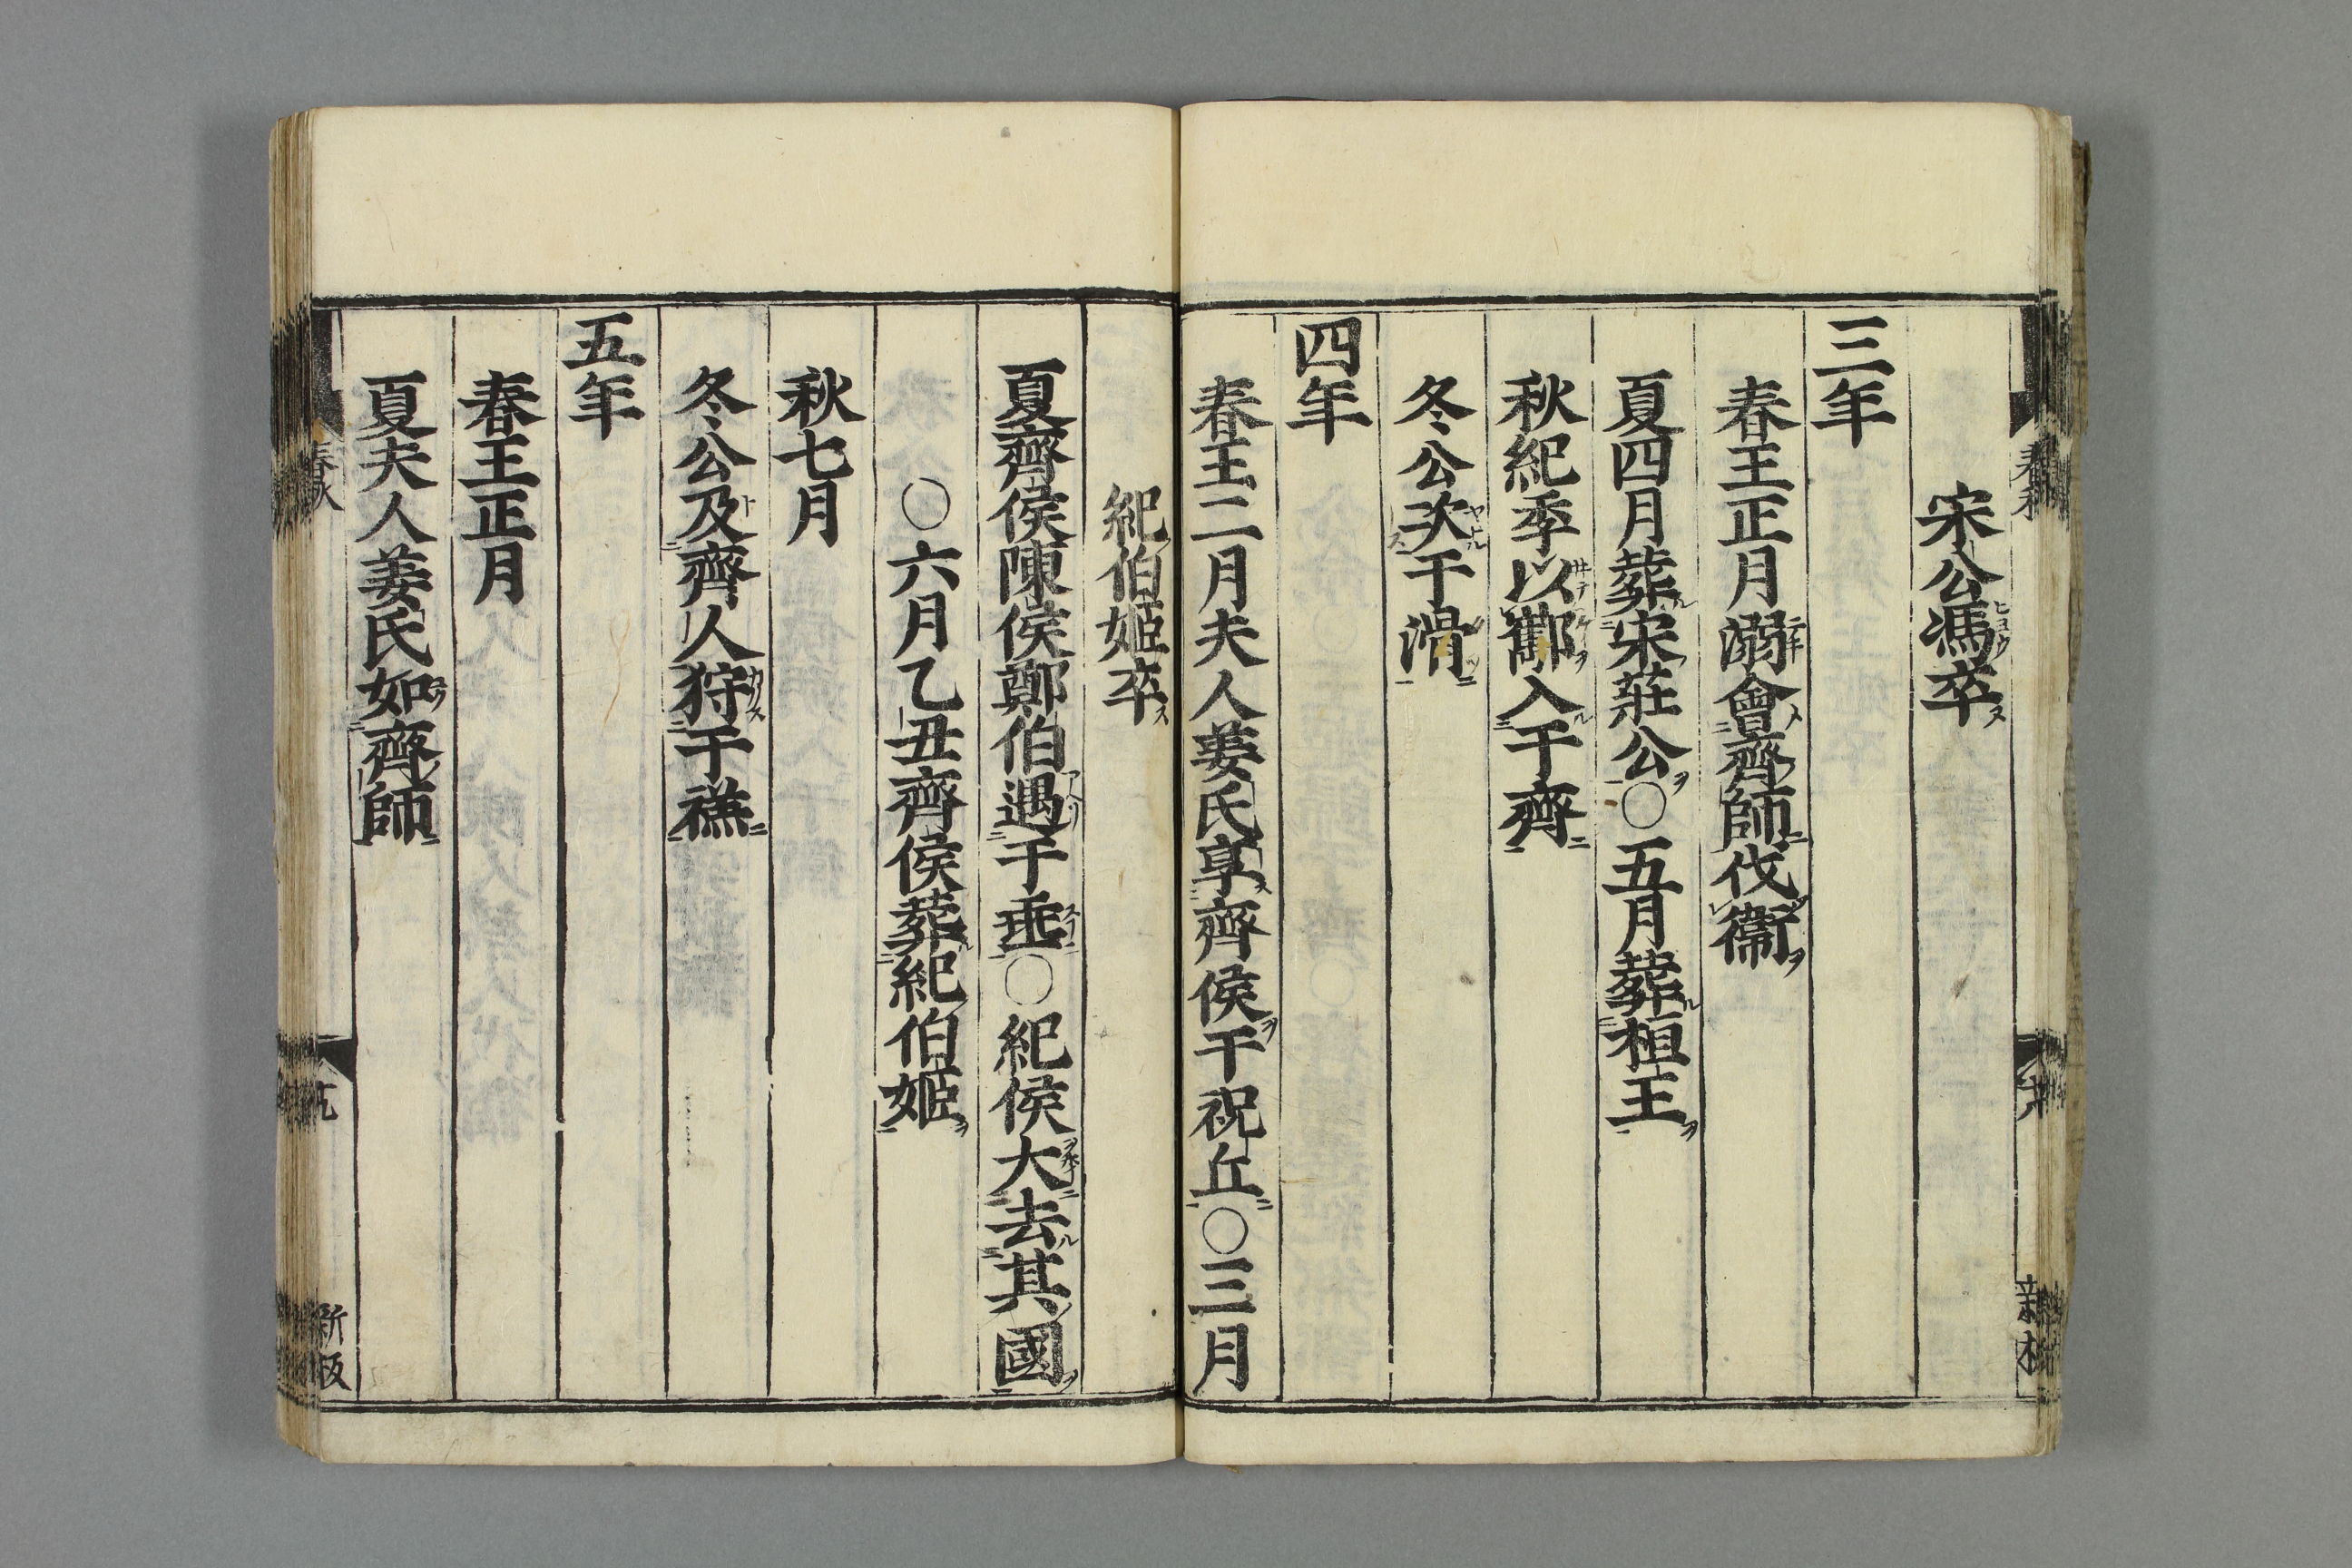 宋公馮卒
三年
春王正月溺會齊師伐衞
夏四月葬宋莊公○五月葬桓王
秋紀季以酅入于齊
冬公次于滑
四年
春王二月夫人姜氏享齊侯于祝丘○三月
紀伯姬卒
夏齊侯陳侯鄭伯遇于垂○紀侯大去其國
○六月乙丑齊侯葬紀伯姬
秋七月
冬公及齊人狩于禚
五年
春王正月
夏夫人姜氏如齊師
新板